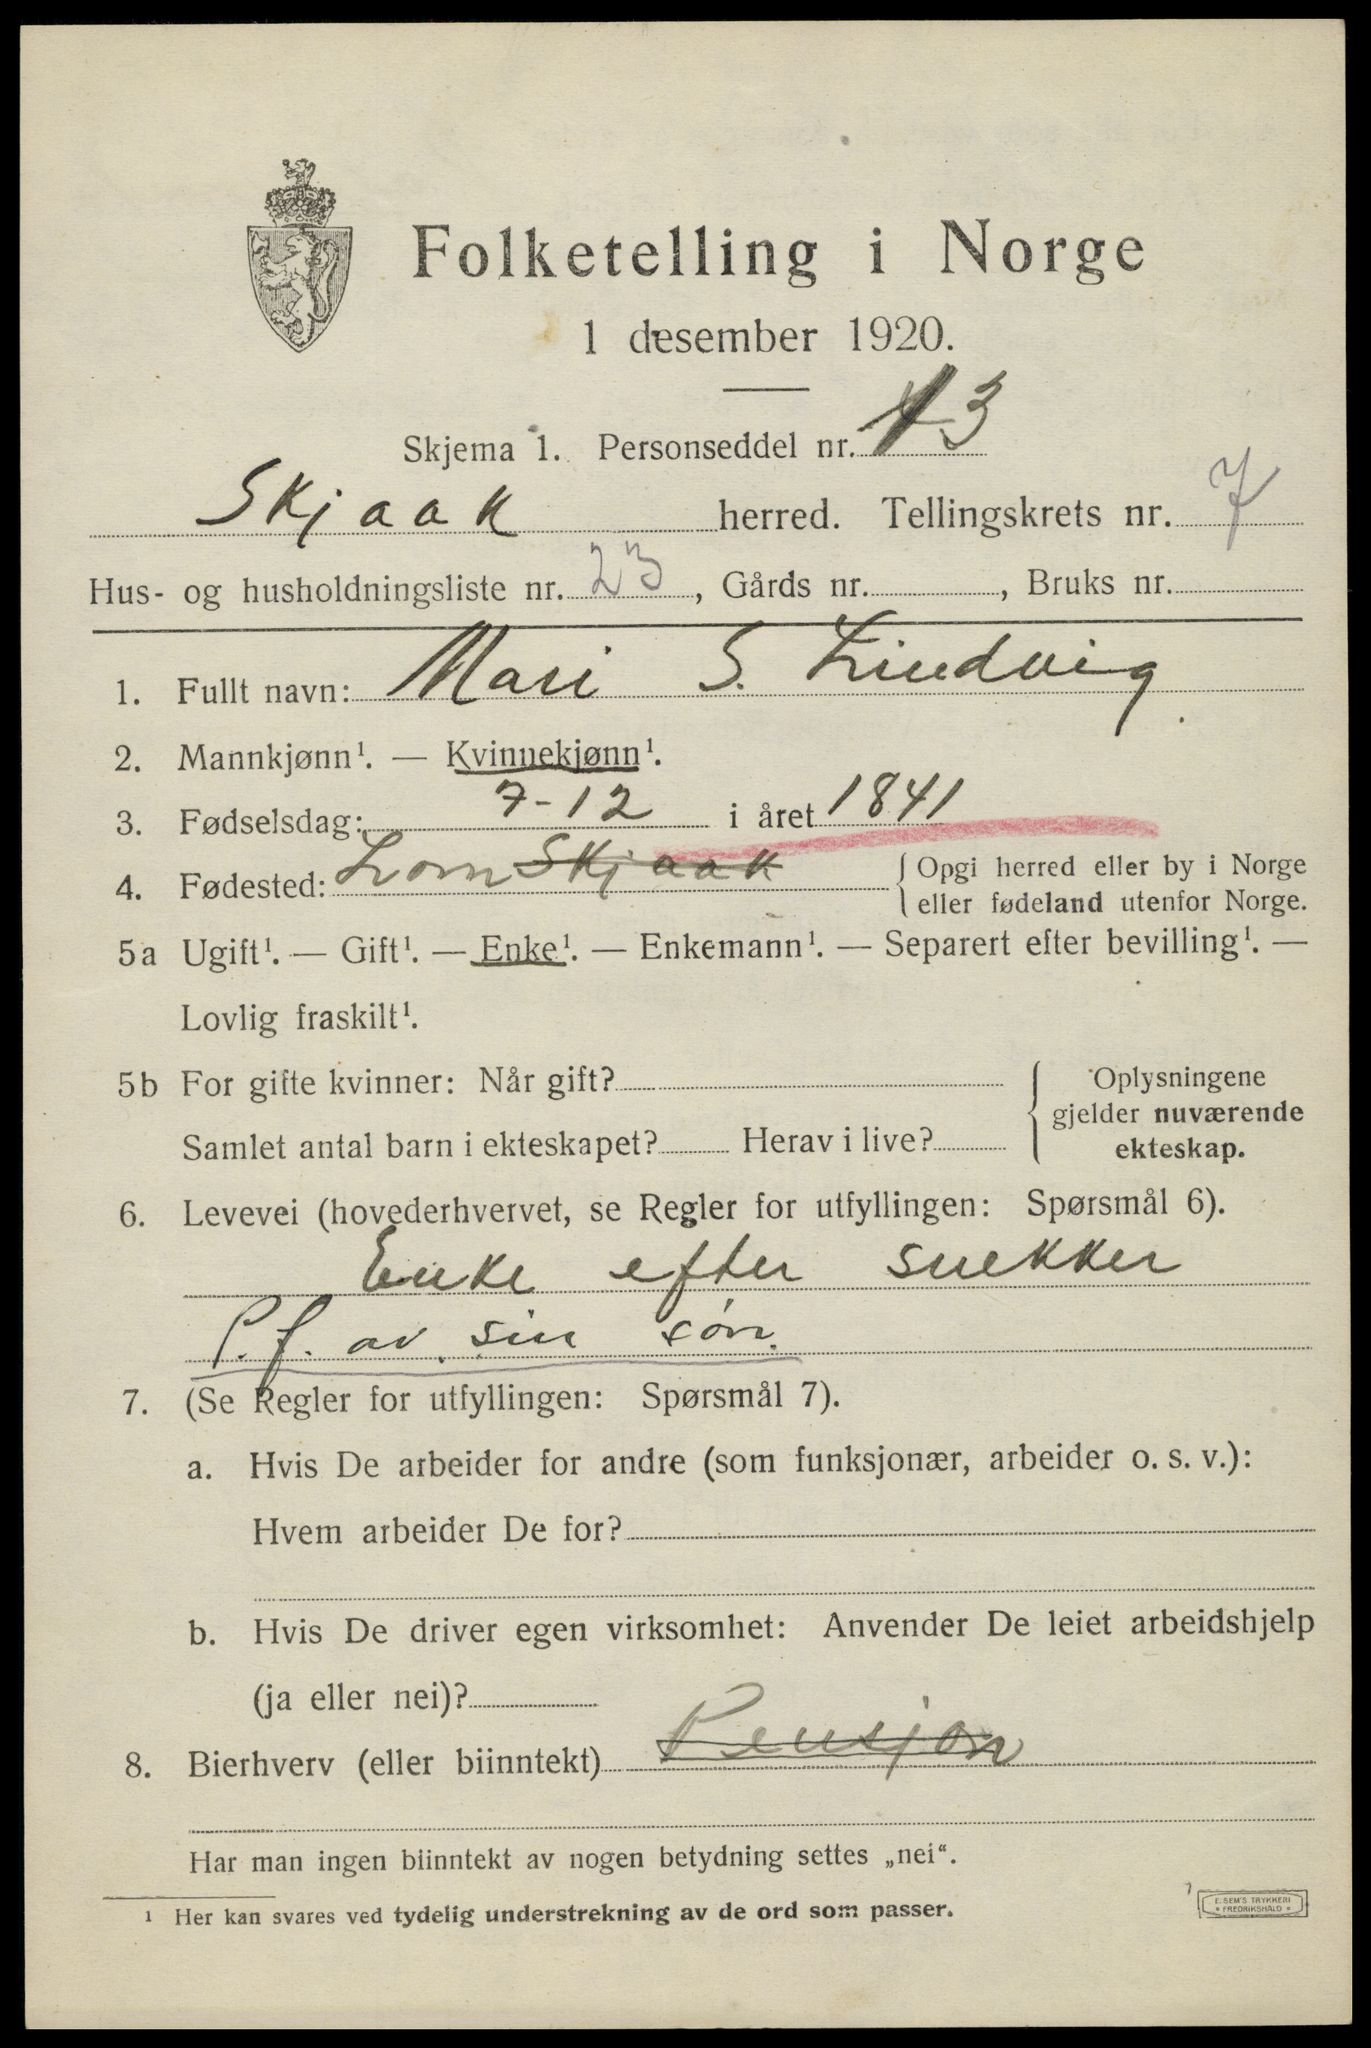 Folketelling i Norge
1 desember 1920.
Skjema 1. Personseddel nr. 3
Skjaak herred. Tellingskrets nr. 7
Hus- og husholdningsliste nr. 23, Gårds nr. , Bruks nr.
1. Fullt navn: Mari S. Lindvig
2. Mannkjønn¹. — Kvinnekjønn¹.
3. Fødselsdag: 7-12 i året 1841
4. Fødested: Lom Skjaak { Opgi herred eller by i Norge
eller fødeland utenfor Norge.
5a Ugift¹. — Gift¹. — Enke¹. — Enkemann¹. — Separert efter bevilling¹. —
Lovlig fraskilt¹.
5b For gifte kvinner: Når gift? { Oplysningene
gjelder nuværende
Samlet antal barn i ekteskapet? Herav i live? ekteskap.
6. Levevei (hovederhvervet, se Regler for utfyllingen: Spørsmål 6).
Enke efter snekker
P. f. av sin søn.
7. (Se Regler for utfyllingen: Spørsmål 7).
a. Hvis De arbeider for andre (som funksjonær, arbeider o. s. v.):
Hvem arbeider De for?
b. Hvis De driver egen virksomhet: Anvender De leiet arbeidshjelp
(ja eller nei)?
8. Bierhverv (eller biinntekt) Pensjon
Har man ingen biinntekt av nogen betydning settes „nei“.
¹ Her kan svares ved tydelig understrekning av de ord som passer.
E. SEM'S TRYKKERI
FREDRIKSHALD